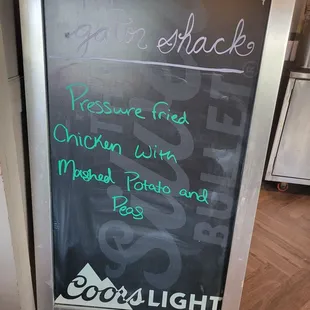 gat'r shack
Pressure fried
Chicken with
Mashed Potato and
Peas
Coors LIGHT